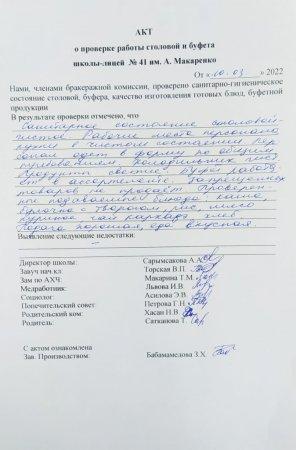 АКТ
о проверке работы столовой и буфета
школы-лицей № 41 им. А. Макаренко
От « 10. 03 » 2022
Нами, членами бракеражной комиссии, проверено санитарно-гигиническое
состояние столовой, буфера, качество изготовления готовых блюд, буфетной
продукции
В результате проверки отмечено, что
Санитарное состояние столовой-
чистое. Рабочие места персонала
кухни в чистом состоянии. Пер
сонал одет в форму по общим
требованиям. Холодильник чист
Продукты свежие. Буфет работа
ет в ассортименте. Запрещенных
товаров не продаёт. Проверен-
ны подаваемые блюда: каша,
булочка с творогом, рис, мясо
куриное чай каркадэ, хлеб.
Подача хорошая, еда вкусная.
Выявление следующие недостатки:
Директор школы: Сарымсакова А.А.
Завуч нач.кл: Торская В.П.
Зам по АХЧ: Макарина Т.М.
Медработник: Львова И.В.
Социолог: Асилова Э.В.
Попечительский совет Петрова Г.Н
Родительский ком: Хасан Н.В.
Родитель: Сатканова Т.
С актом ознакомлена
Зав. Производством: Бабамамедова З.Х.